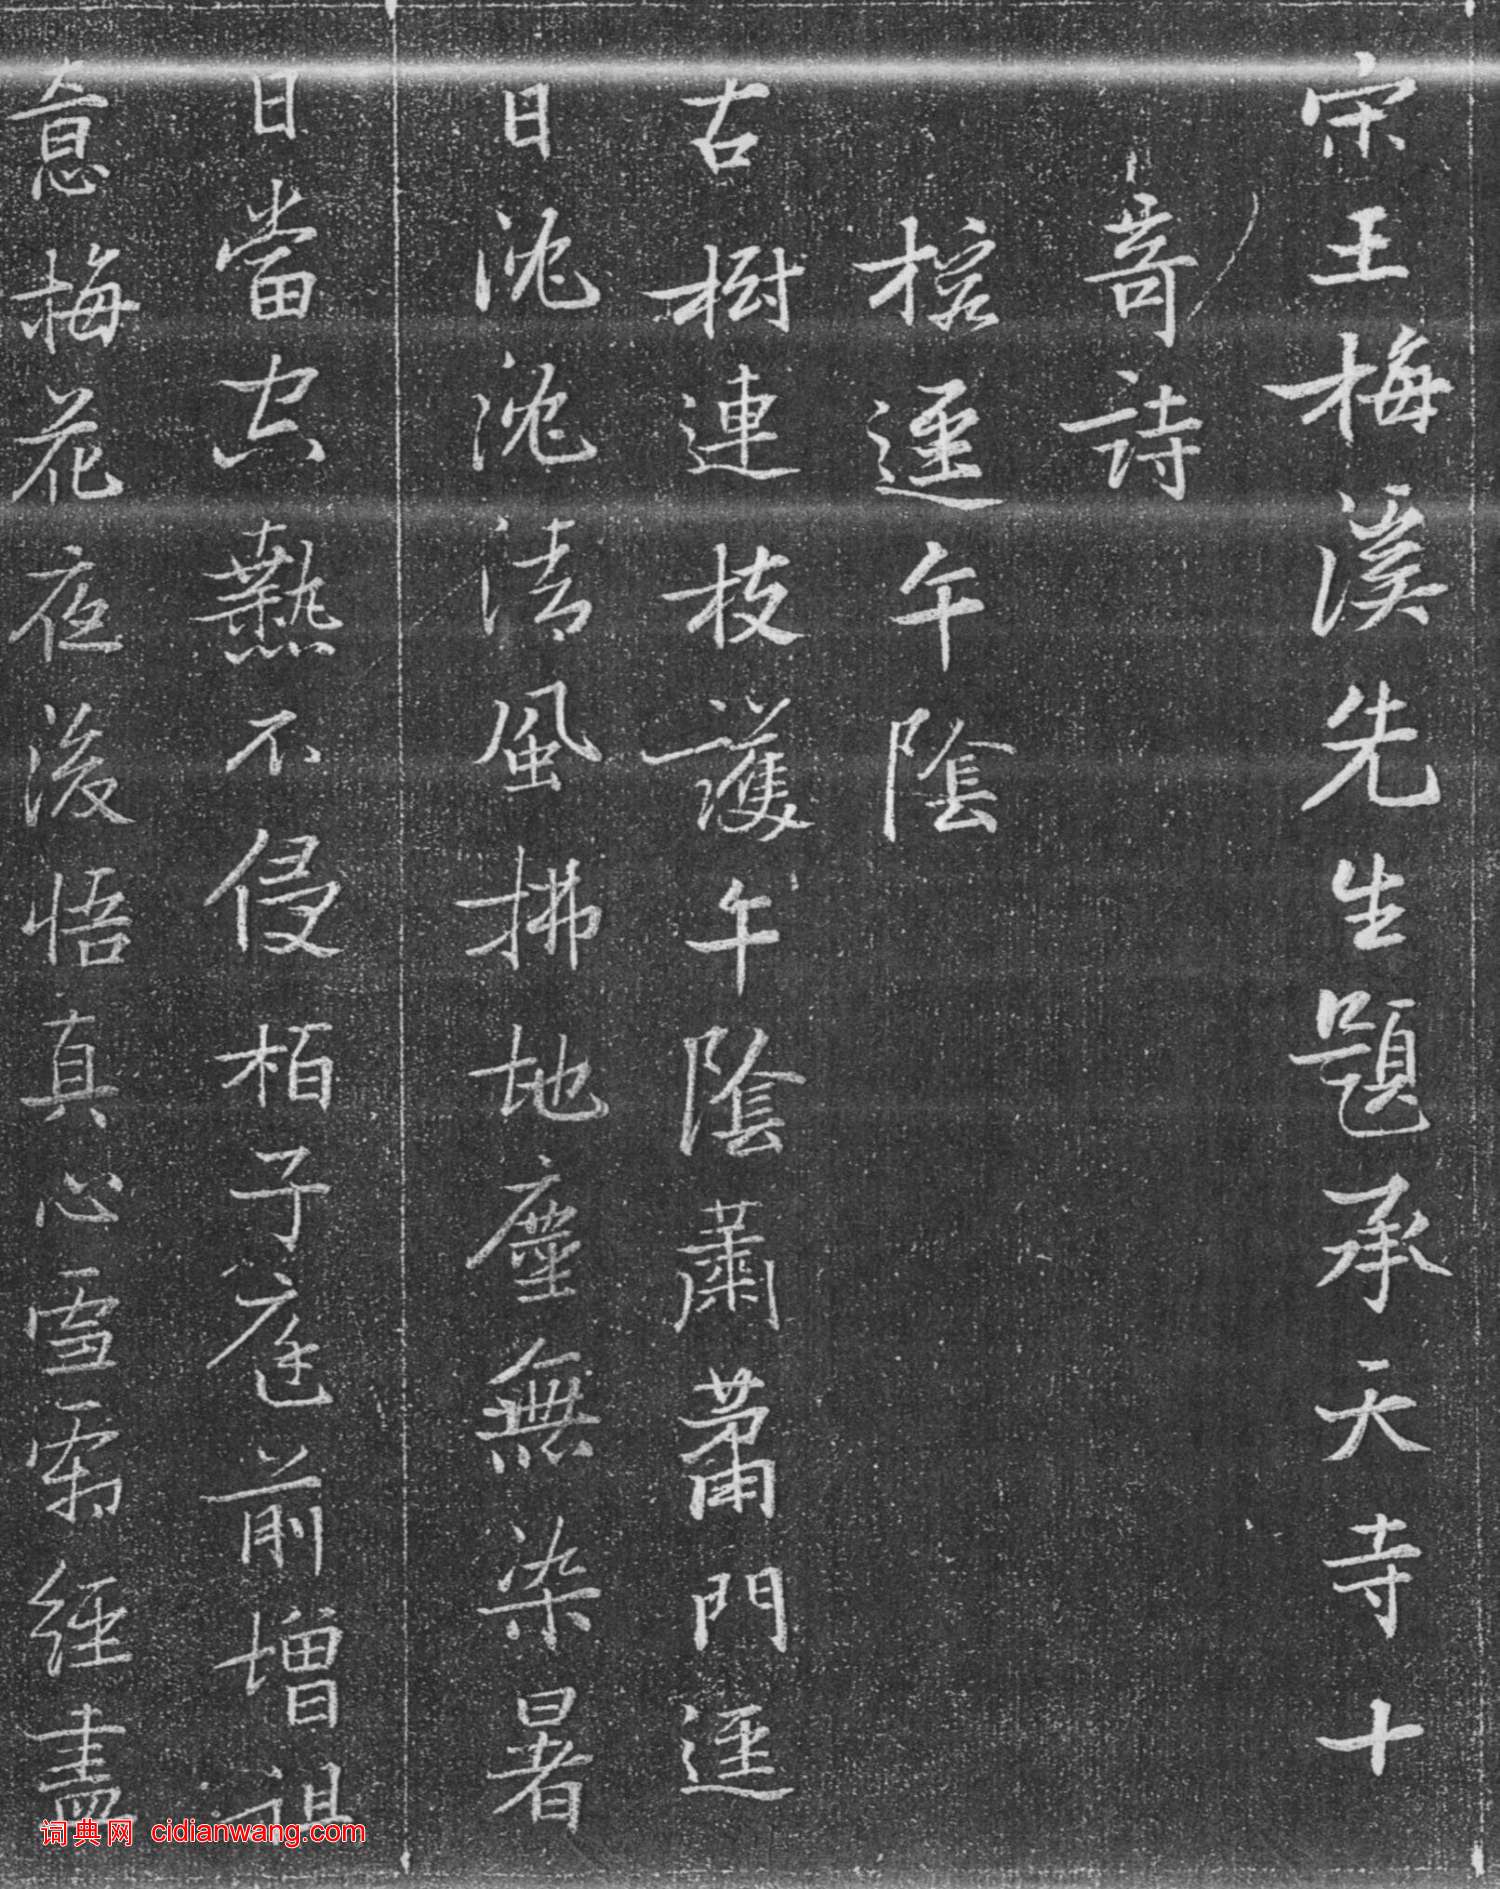 宋王梅溪先生題承天寺十
奇詩
榕逕午陰
古樹連枝護午陰蕭蕭門逕
日沈沈清風拂地塵無染暑
日當空熱不侵栢子庭前增祖
意梅花夜後悟真心雪霜經盡
词典网 cidianwang.com